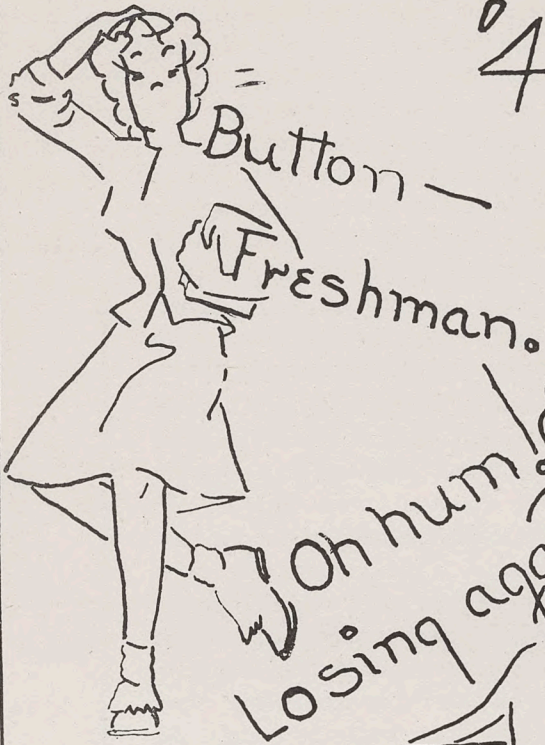 '4
Button —
Freshman.
Oh hum!
Losing aga